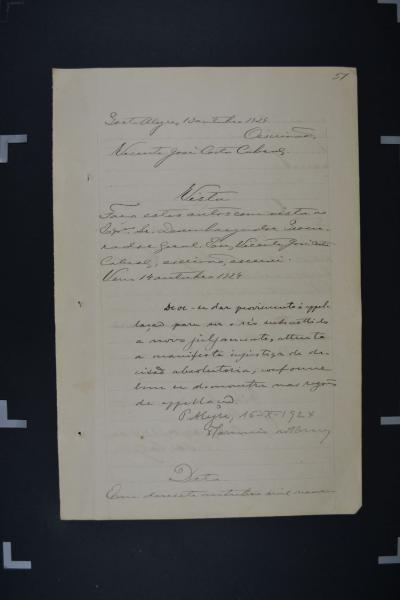 51
Porto Alegre, 13 outubro 1924
O escrivão,
Vicente José Costa Cabral.
Vista
Faço estes autos com vista ao
Exmo. Sr. Desembargador Procu-
rador Geral. Eu, Vicente José Costa
Cabral, escrivão, escrevi.
Em 14 outubro 1924
Deve-se dar provimento á appel-
lação para ser o réo submettido
a novo julgamento, attenta
a manifesta injustiça da de-
cisão absolutoria, conforme
bem se demonstra nas razões
de appellação.
P. Alegre, 16-X-1924
Data